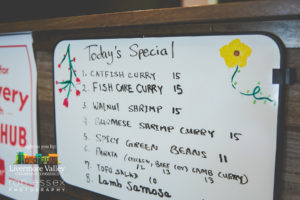 Today's Special
1. CATFISH CURRY 15
2. FISH CAKE CURRY 15
3. WALNUT SHRIMP 15
4. BURMESE SHRIMP CURRY 15
5. SPICY GREEN BEANS 11
6. PARATA (CHICKEN, BEEF (OR) LAMB CURRY)
12 13 13
7. TOFU SALAD 10
8. Lamb Samosa
for
very
HUB
Livermore Valley
PHOTOGRAPHY